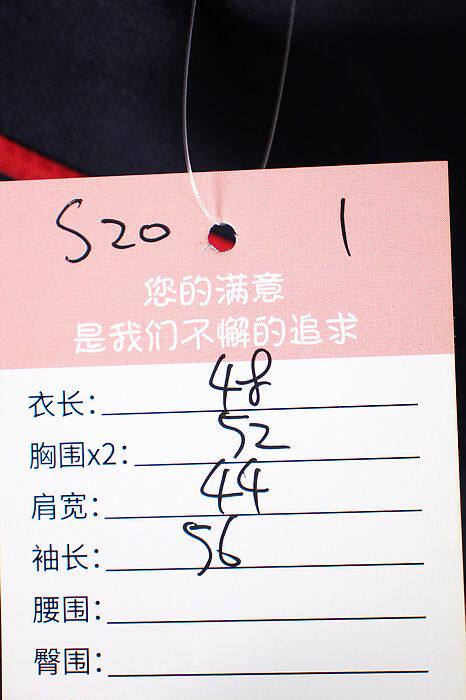 S20 1
您的满意
是我们不懈的追求
衣长: 48
胸围x2: 52
肩宽: 44
袖长: 56
腰围:
臀围: